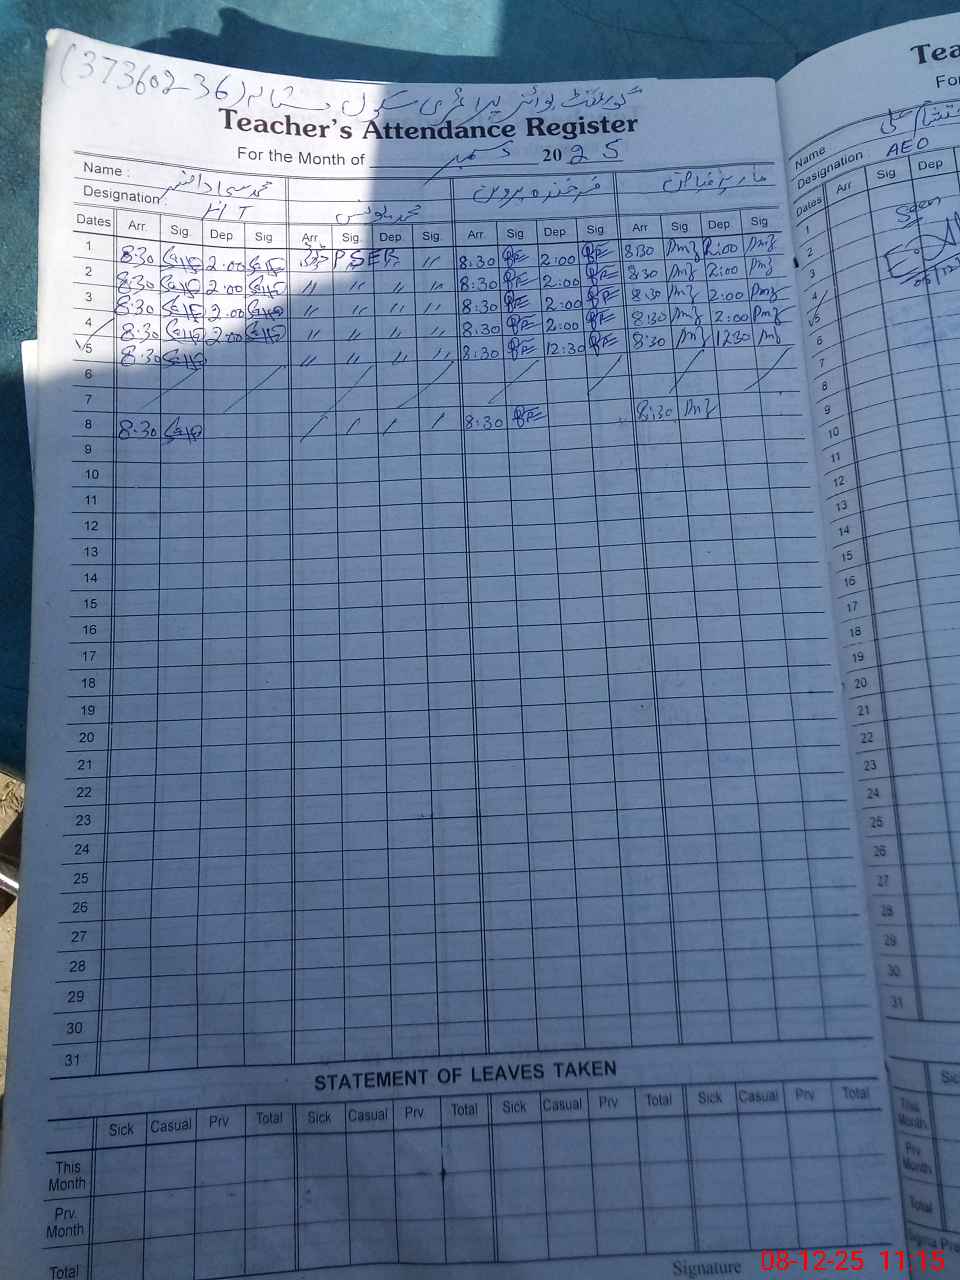 گورنمنٹ بوائز پرائمری سکول (37360236)
Teacher's Attendance Register
For the Month of دسمبر 2025
Name : محمد فرخندہ پروین
Designation : HT محمد یونس
Dates Arr. Sig. Dep. Sig Arr. Sig. Dep. Sig. Arr. Sig. Dep. Sig. Arr Sig Dep. Sig.
1 8:30 2:00 PSER 〃 8:30 2:00 8:30 2:00
2 8:30 2:00 〃 〃 〃 〃 8:30 2:00 8:30 2:00
3 8:30 2:00 〃 〃 〃 〃 8:30 2:00 8:30 2:00
4 8:30 2:00 〃 〃 〃 〃 8:30 2:00 8:30 2:00
5 8:30 〃 〃 〃 〃 8:30 12:30 8:30 12:30
6
7
8 8:30 8:30 8:30
9
10
11
12
13
14
15
16
17
18
19
20
21
22
23
24
25
26
27
28
29
30
31
STATEMENT OF LEAVES TAKEN
Sick Casual Prv Total Sick Casual Prv Total Sick Casual Prv Total Sick Casual Prv Total
This Month
Prv. Month
Total
Signature
Tea
For
Name
Designation AEO
Dates Arr Sig Dep
1 Seen
2
3
4
5
6
7
8
9
10
11
12
13
14
15
16
17
18
19
20
21
22
23
24
25
26
27
28
29
30
31
This Month
Prv Month
Total
08-12-25 11:15